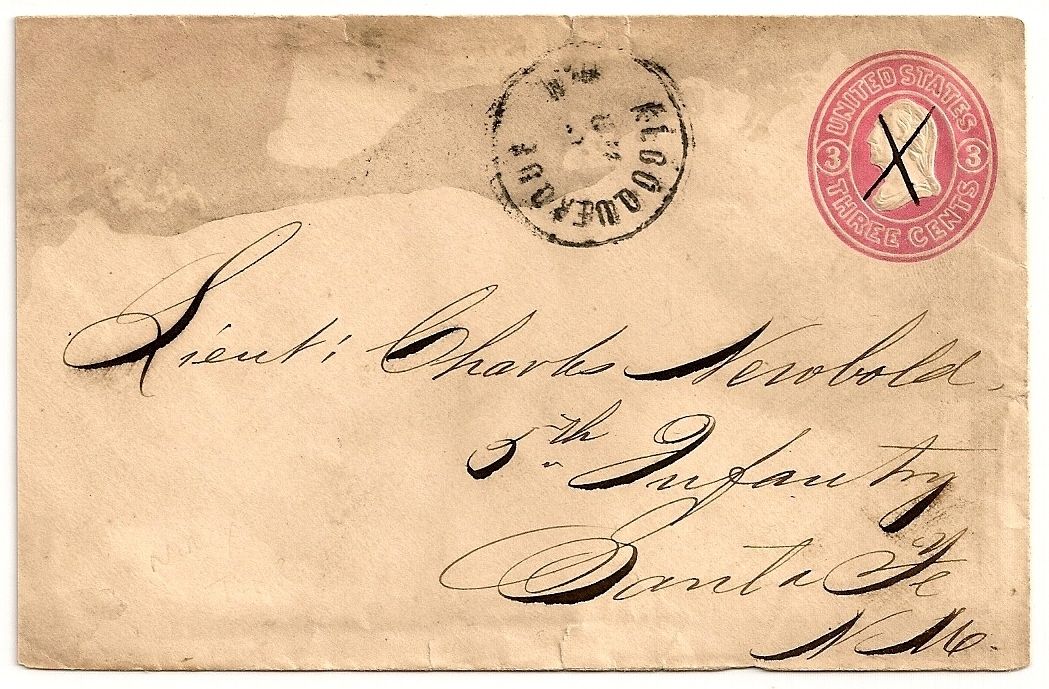 UNITED STATES
3 3
THREE CENTS
ALBUQUERQUE
N.M
Lieut: Charles Newbold.
5th Infantry
Santa Fe
N.M.